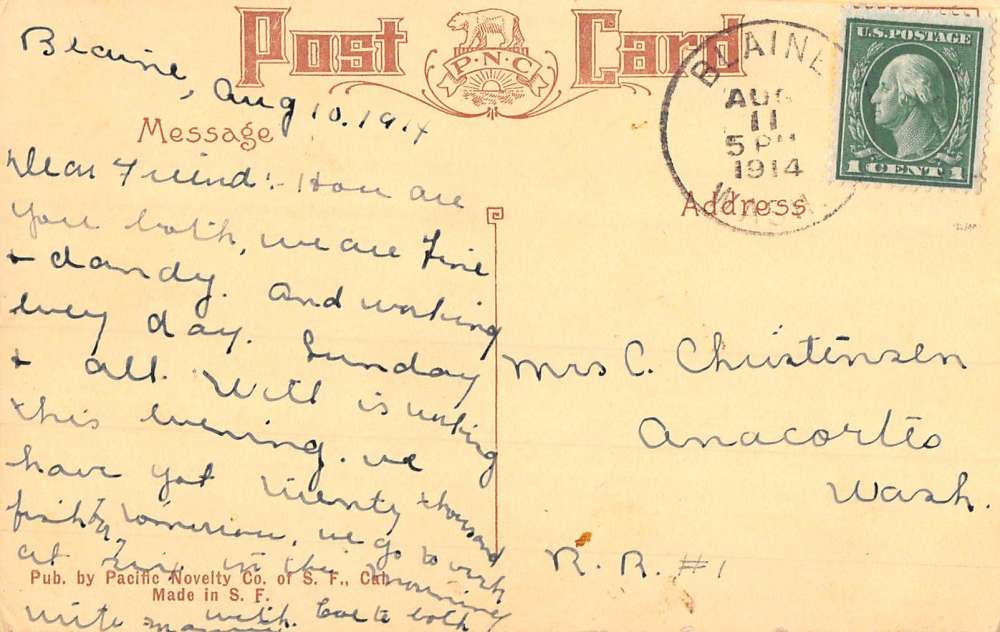 Post Card
P.N.C.
Blaine, Aug 10. 1914
Message
Dear Friend:- How are
you both, we are Fine
+ dandy. And working
every day. Sunday
+ all. Will is working
this evening. we
have got twenty thousand
fish for tomorrow, we go to work
at five in the morning
with love to both
write
Pub. by Pacific Novelty Co. of S. F., Cal.
Made in S. F.
BLAINE
AUG
11
5 PM
1914
WASH
U.S. POSTAGE
1 CENT 1
Address
Mrs C. Christensen
Anacortes
Wash.
R. R. #1